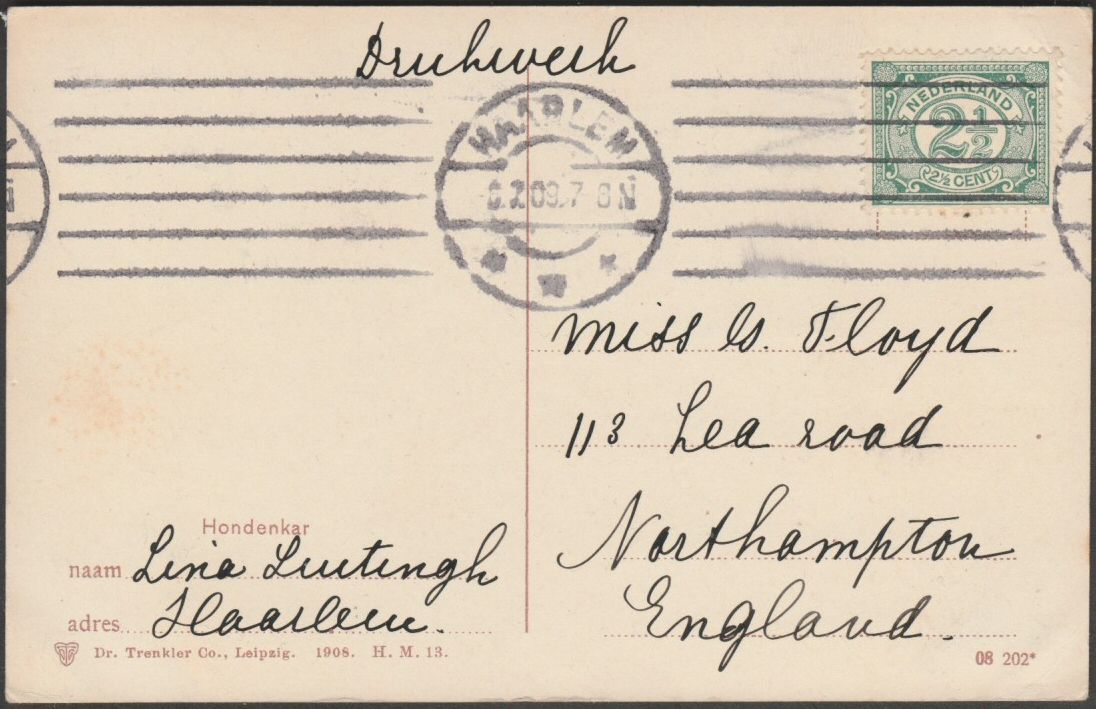 Drukwerk
HAARLEM
7.09.7-8N
NEDERLAND
2½
2½ CENT
Miss G. Floyd
113 Lea road
Northampton
England.
Hondenkar
naam Lina Luitingh
adres Haarlem.
Dr. Trenkler Co., Leipzig. 1908. H. M. 13.
08 202*